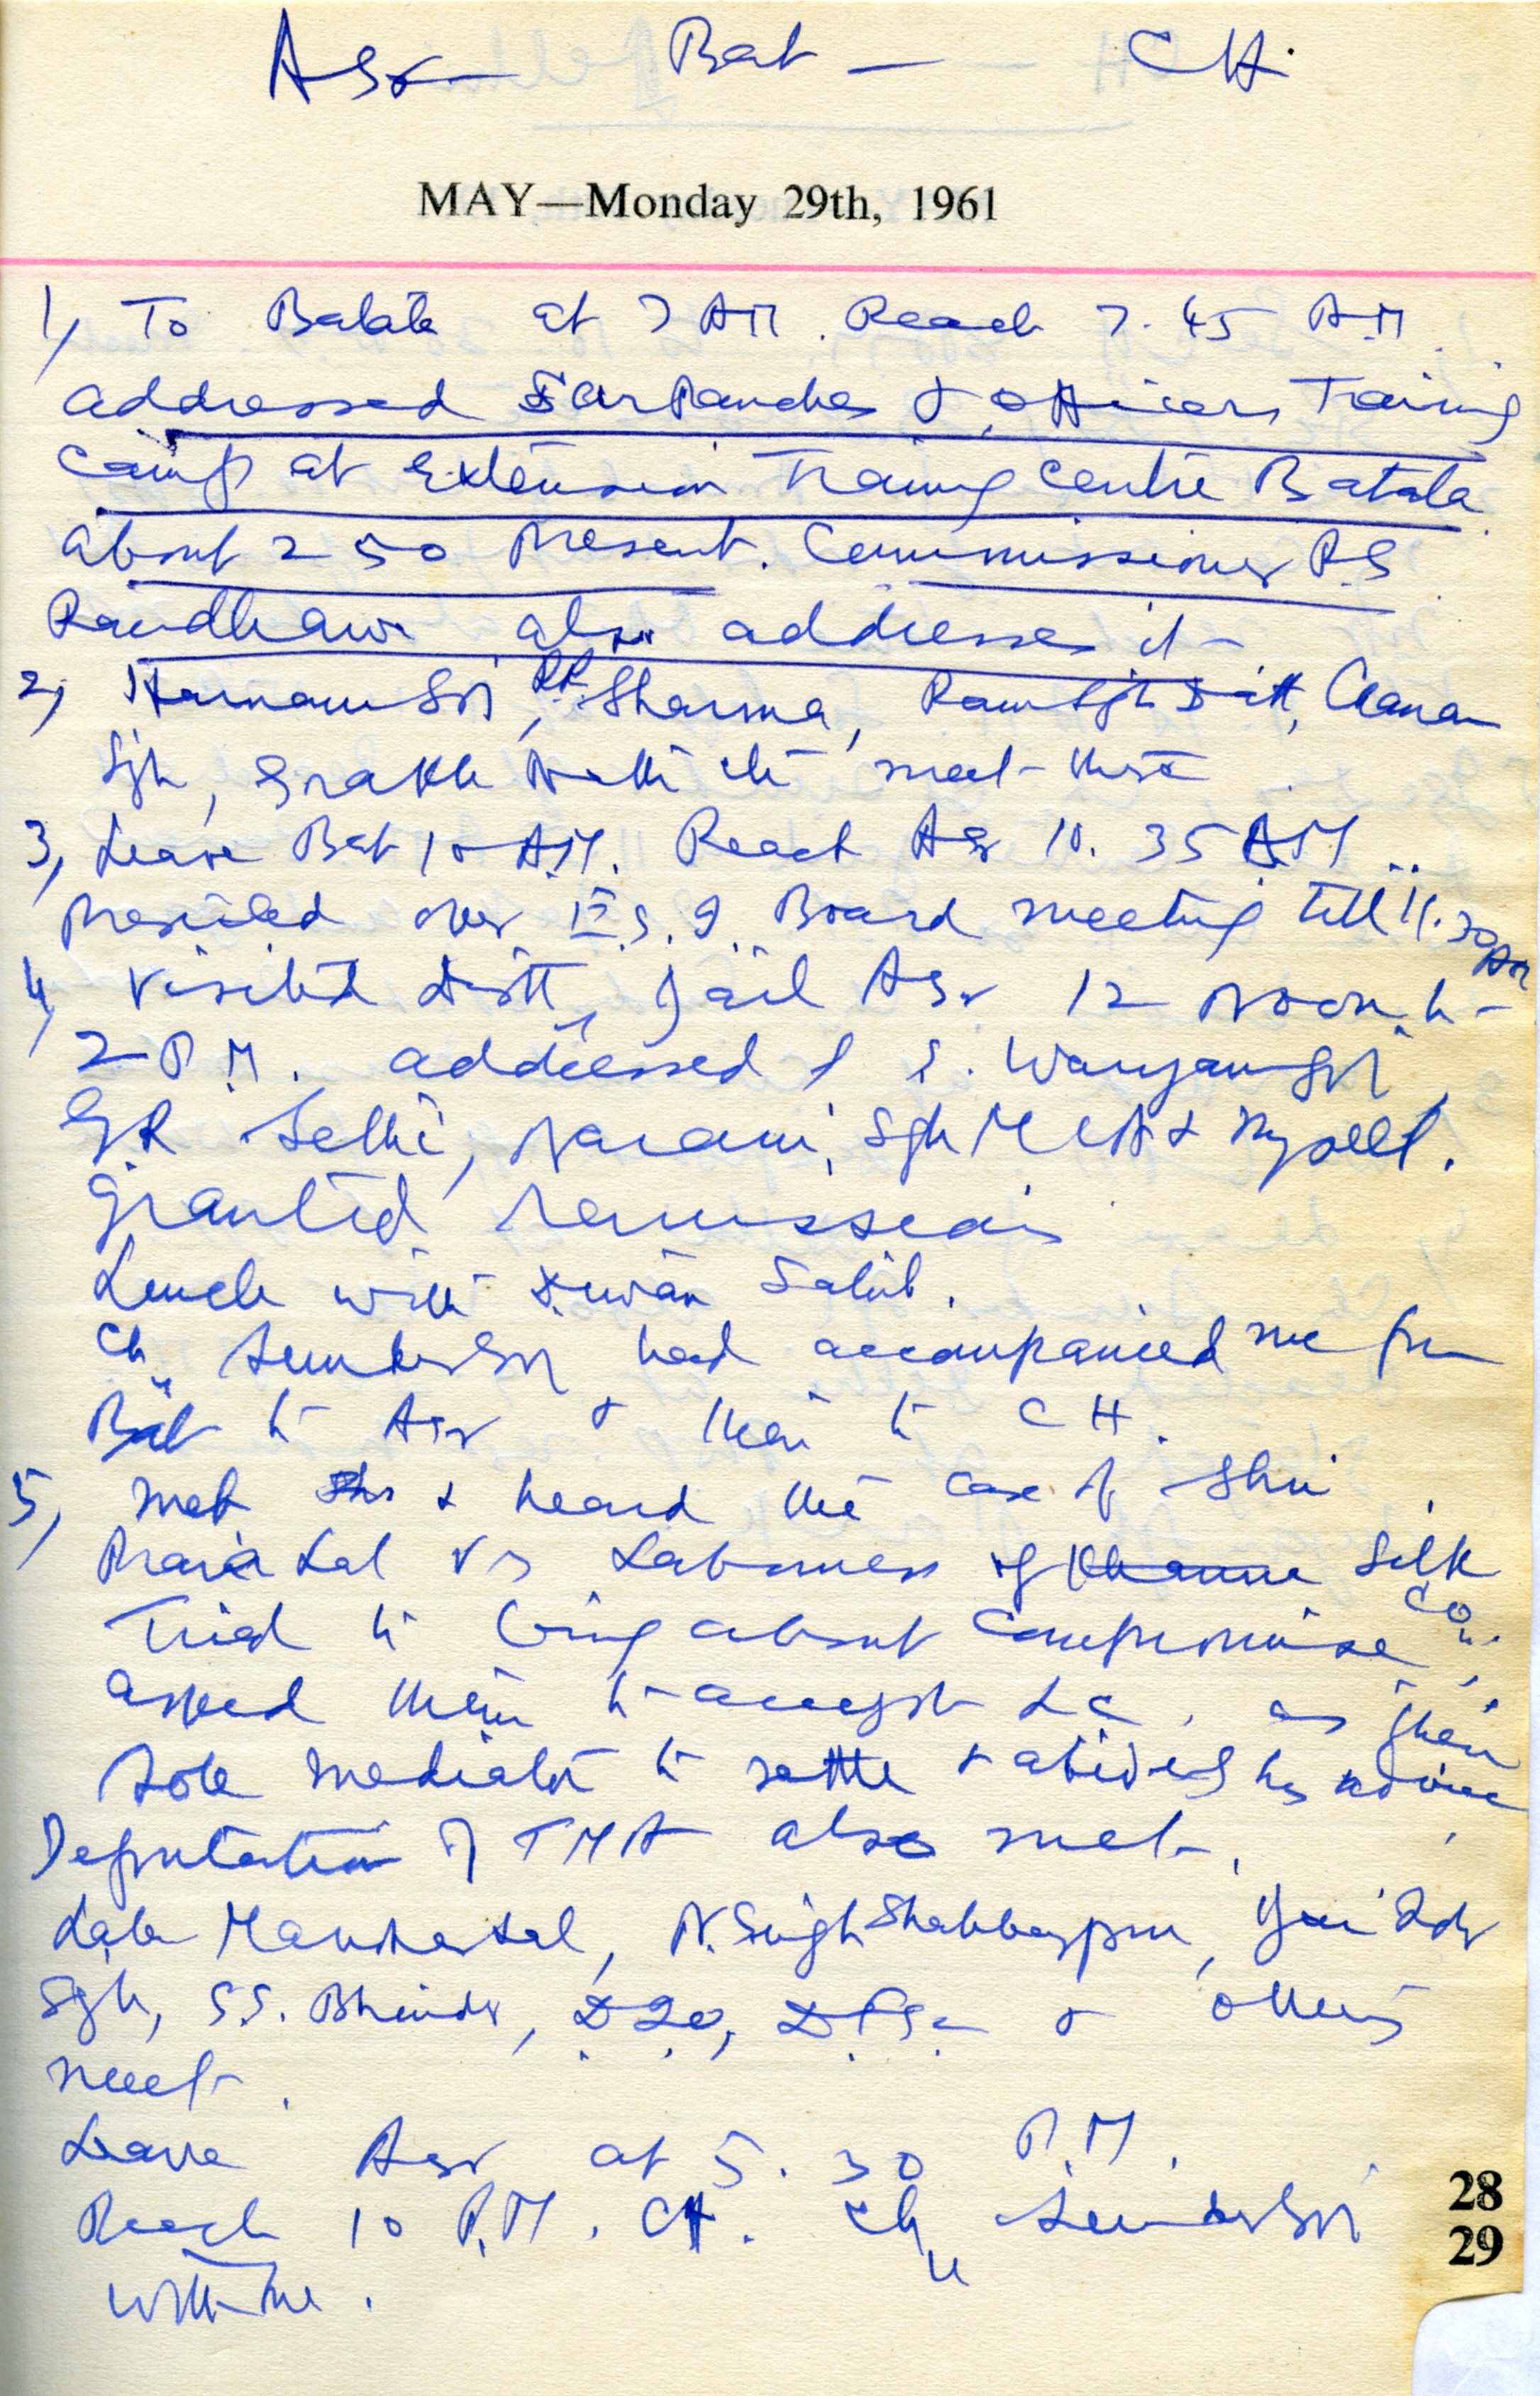 Asr — Bat — CH.
MAY—Monday 29th, 1961
1, To Batala at 7 AM. Reach 7.45 A.M.
addressed SarPanches & officers Training
Camp at Extension Training Centre Batala
about 250 Present. Commissioner P.S
Randhawa also addresses it
2, Harnam Sgh, Sharma, Ram Sgh Datt, Chanan
Sgh, meet there
3, Leave Bat 10 AM. Reach Asr 10.35 AM..
Presided over Board meeting till 11.30 AM
4, Visited distt, Jail Asr 12 Noon to
2 P.M. addressed S. Waryam Sgh,
GR Sethi, Narain Sgh MLA & Myself.
granted remission
Lunch with Dewan Sahib.
Ch Sunder Sgh had accompanied me from
Bat to Asr & then to CH.
5, Met & heard the case of Shri
Lal Vs Labourers of Khanna Silk
Tried to bring about Compromise Co.
asked them to accept L.C. as their
Sole mediator to settle & abide by his advice
Deputation of TMA also met.
Lala Manohar Lal, N. Singh Shahbazpur, Indr
Sgh, S.S. Bhinder, & others
meet.
Leave Asr at 5.30 P.M.
Reach 10 P.M. CH. Ch Sunder Sgh
with me.
28
29